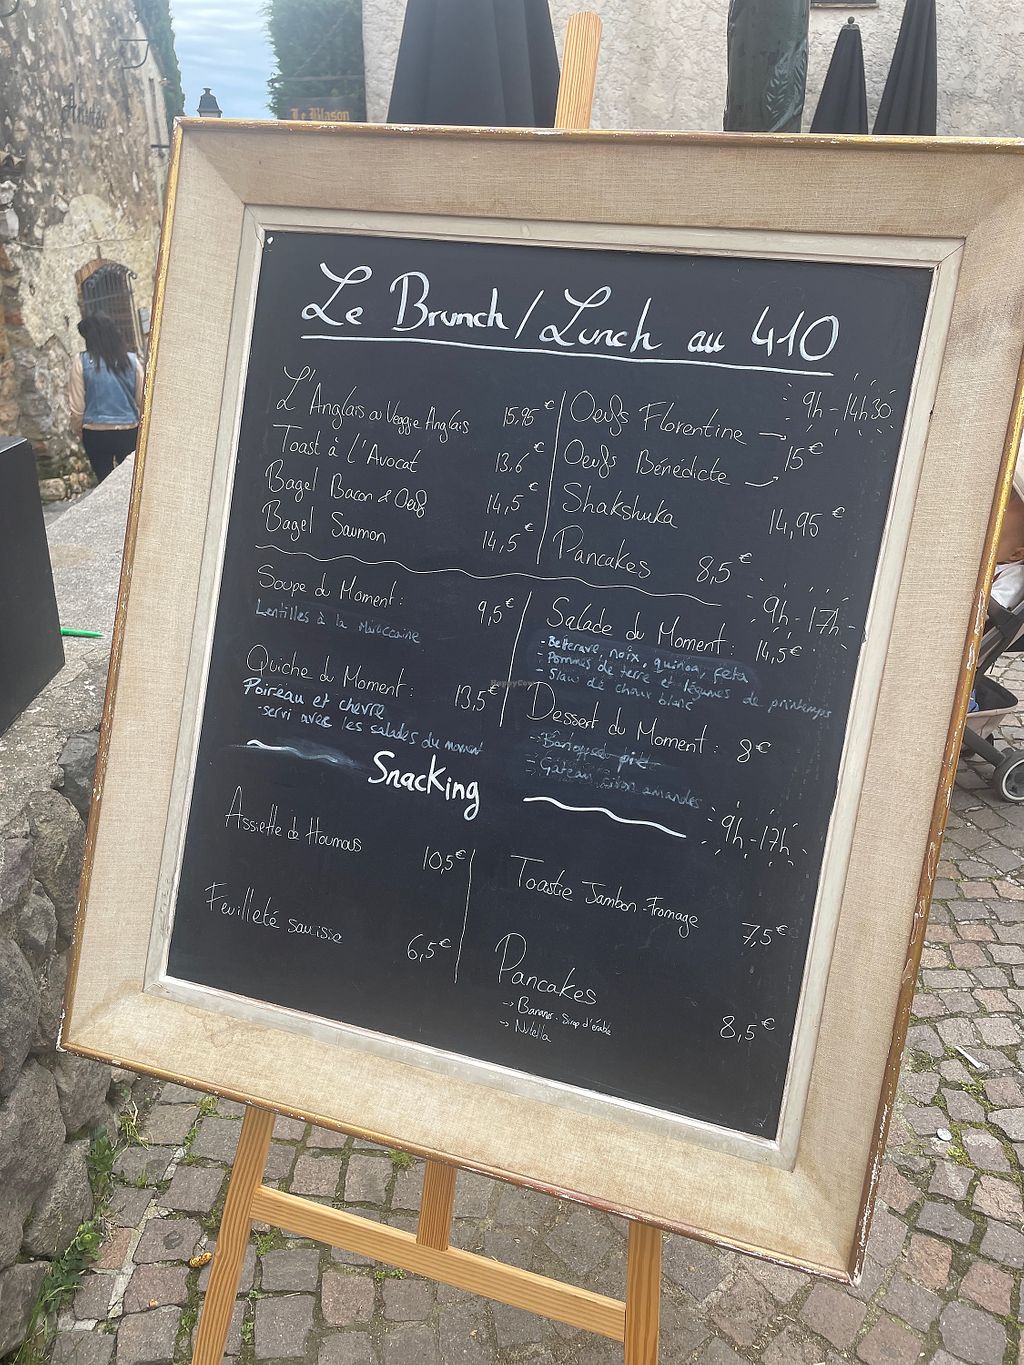 Le Blason
Le Brunch/Lunch au 410
9h - 14h30
L'Anglais ou Veggie Anglais 15,95€
Toast à l'Avocat 13,6€
Bagel Bacon & Oeuf 14,5€
Bagel Saumon 14,5€
Oeufs Florentine
15€
Oeufs Bénédicte
Shakshuka 14,95€
Pancakes 8,5€
9h - 17h
Soupe du Moment: 9,5€
Lentilles à la Maroccaine
Quiche du Moment: 13,5€
Poireau et chèvre
- servi avec les salades du moment
Salade du Moment: 14,5€
- Betterave, noix, quinoa, feta
- Pommes de terre et légumes de printemps
- Slaw de choux blanc
Dessert du Moment: 8€
amandes
Snacking
9h - 17h
Assiette de Houmous 10,5€
Feuilleté saucisse 6,5€
Toastie Jambon-Fromage 7,5€
Pancakes 8,5€
→ Banane - Sirop d'érable
→ Nutella
HappyCow